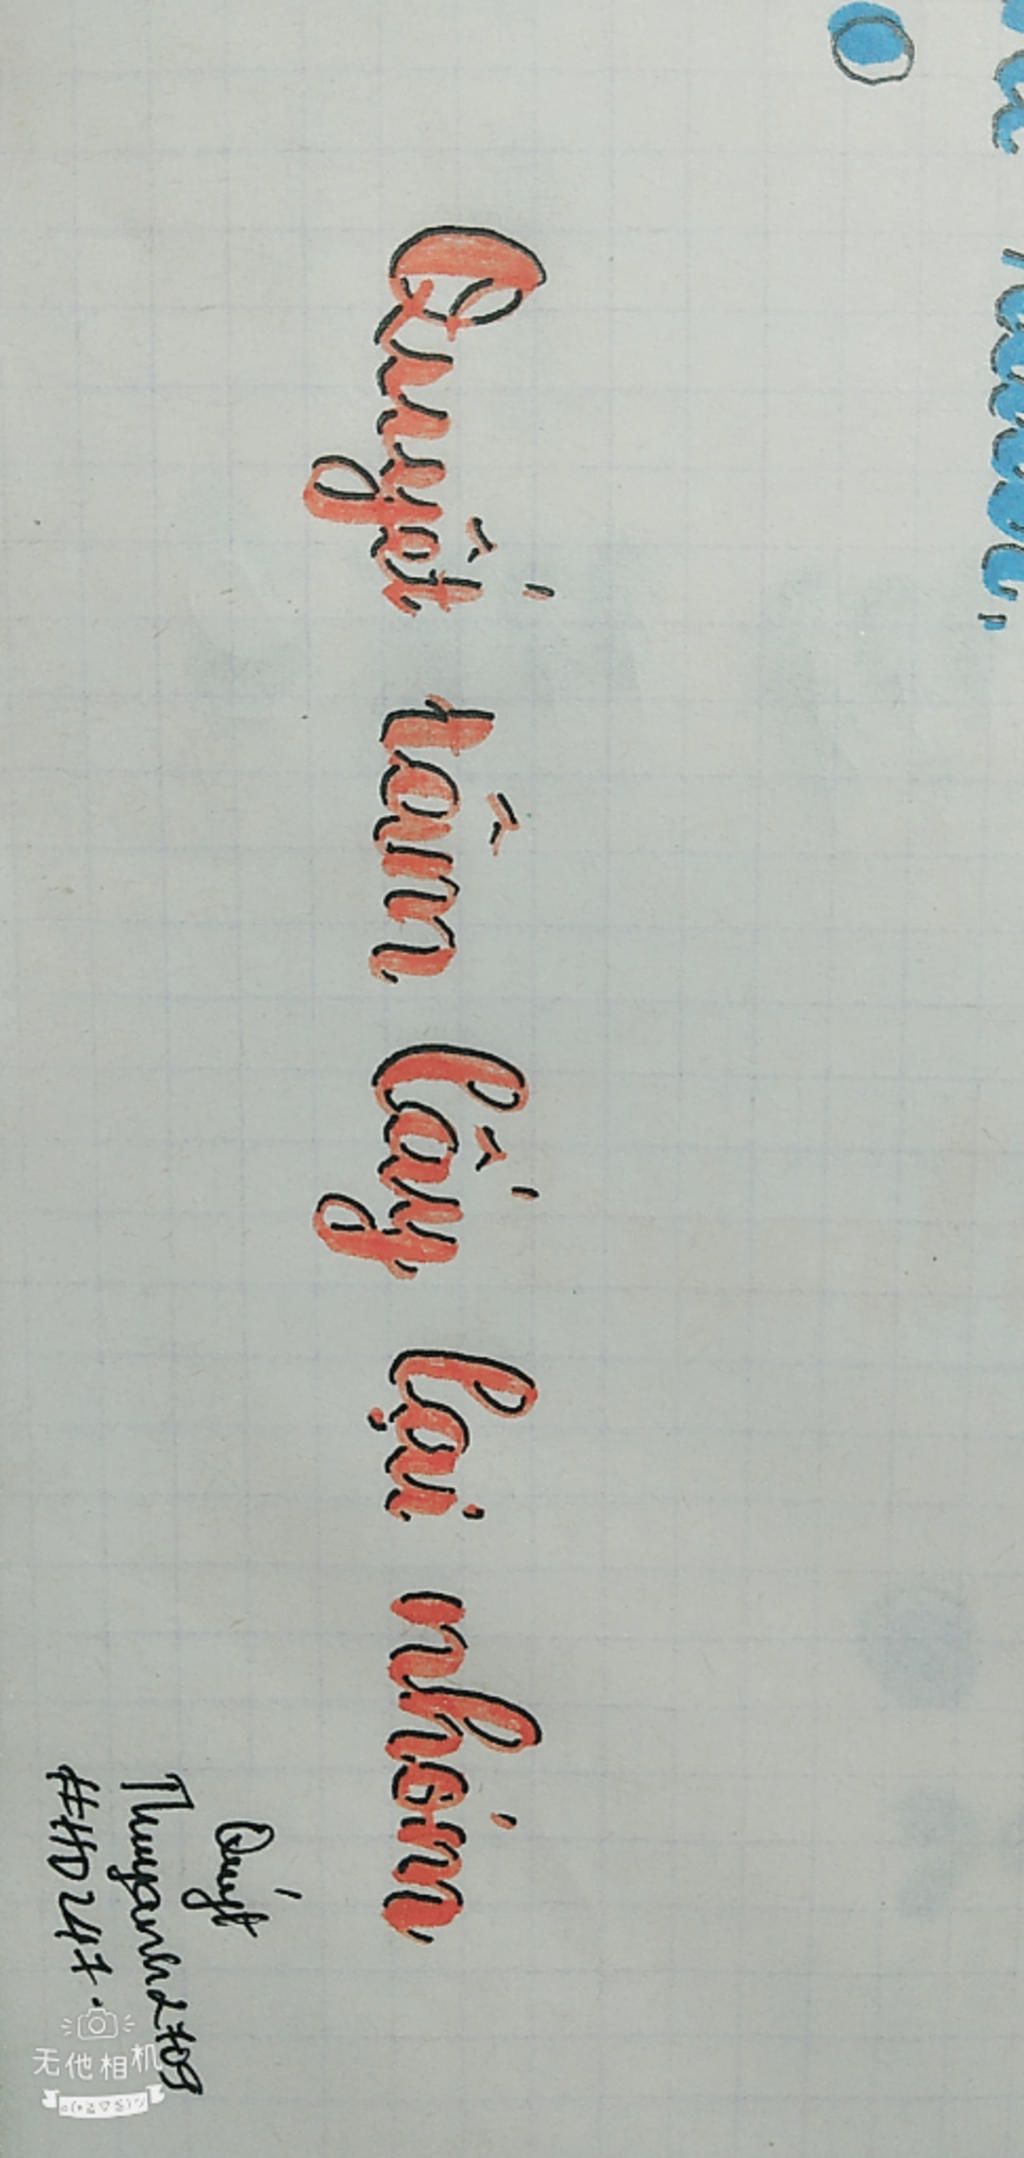 Quyết tâm lấy lại nhóm
Quýt
Thuyanh2709
#HD247.
无他相机